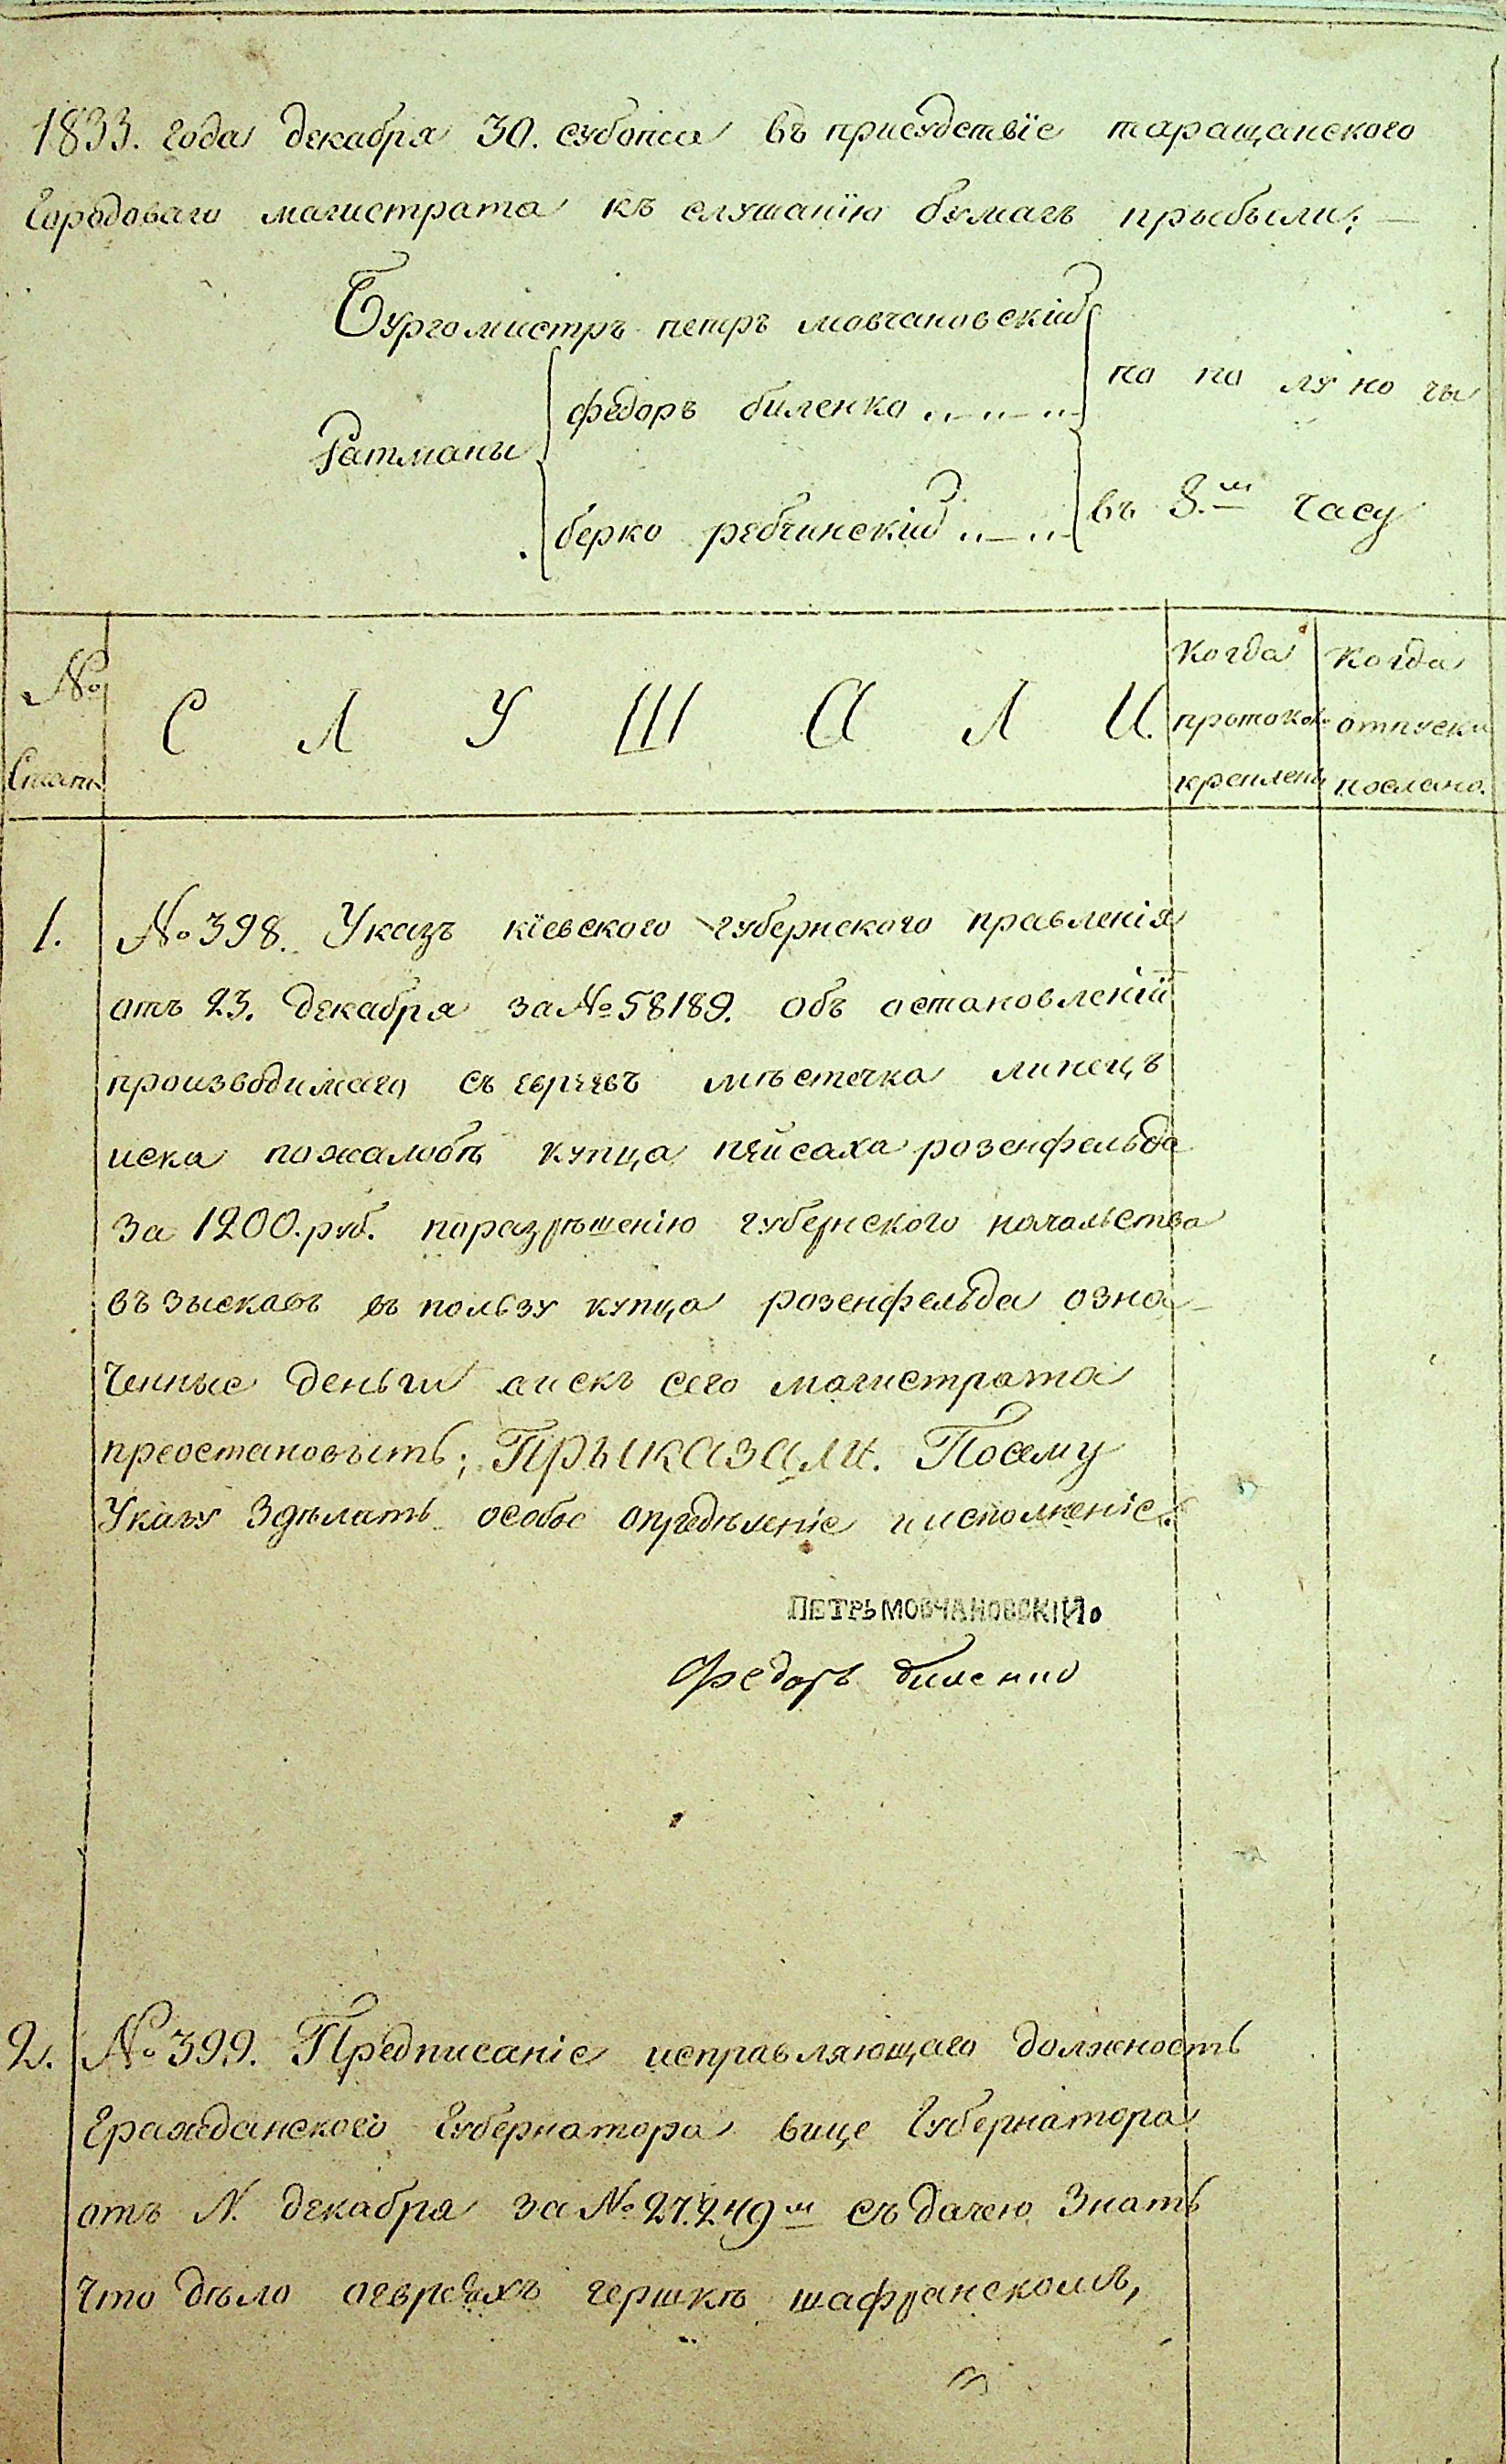 1833. года декабря 30. субота въ присудствїе таращанского
Городоваго магистрата къ слушанїю бумагъ прыбыли; —
Бургомистръ петръ мовчановскій
Ратманы
федоръ биленко
по по лу но чы
берко ребчинскій
въ 8.м часу
№
Статьи
С Л У Ш А Л И.
Когда протокол крепленъ
Когда отпуски послано.
1. №398. Указъ кїевского губернского правленія
отъ 23. декабря за №58189. объ остановленій
производимаго съ евреевъ мѣстечка линецъ
иска пожалобѣ купца пейсаха розенфельда
за 1200. руб. поразрѣшенію губернского начальства
въ зыскавъ въ пользу купца розенфельда озна-
ченные деньги аискъ сего магистрата
преостановыть; ПРЫКАЗАЛИ. Посему
Указу Здѣлать особое опредѣленіе иисполненіе.
ПЕТРЬ МОВЧАНОВСКІЙ.
Федоръ биленко
2. №399. Предписаніе исправляющаго должность
Гражданского Губернатора вице Губернатора
отъ декабря за №27.249м съ дачею Знать
Что дѣло оевреяхъ гершкѣ шафранскомъ,